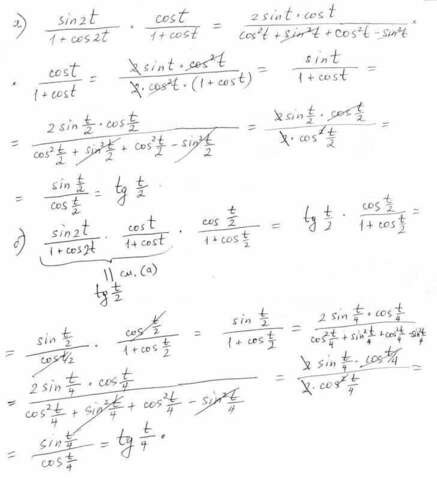 а) sin2t / (1 + cos2t) · cost / (1 + cost) = 2sint · cost / (cos²t + sin²t + cos²t − sin²t) ·
· cost / (1 + cost) = 2sint · cos²t / (2 · cos²t · (1 + cost)) = sint / (1 + cost) =
= 2sin t/2 · cos t/2 / (cos² t/2 + sin² t/2 + cos² t/2 − sin² t/2) = 2sin t/2 · cos t/2 / (2 · cos² t/2) =
= sin t/2 / cos t/2 = tg t/2 .
б) sin2t / (1 + cos2t) · cost / (1 + cost) · cos t/2 / (1 + cos t/2) = tg t/2 · cos t/2 / (1 + cos t/2) =
|| см. (а)
tg t/2
= sin t/2 / cos t/2 · cos t/2 / (1 + cos t/2) = sin t/2 / (1 + cos t/2) = 2sin t/4 · cos t/4 / (cos² t/4 + sin² t/4 + cos² t/4 − sin² t/4)
= 2sin t/4 · cos t/4 / (cos² t/4 + sin² t/4 + cos² t/4 − sin² t/4) = 2sin t/4 · cos t/4 / (2 · cos² t/4) =
= sin t/4 / cos t/4 = tg t/4 .